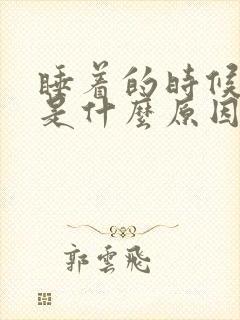 睡着的時候
是什麼原因
郭雲飛